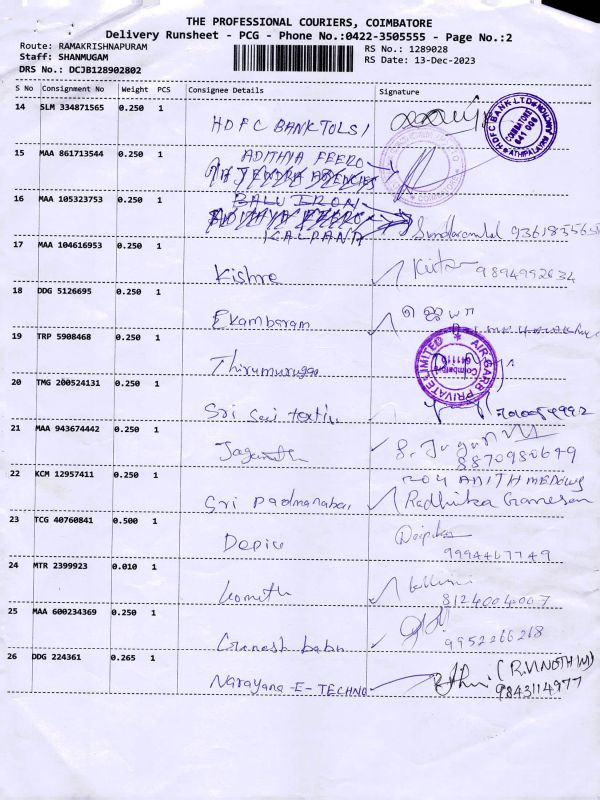 THE PROFESSIONAL COURIERS, COIMBATORE
Delivery Runsheet - PCG - Phone No.:0422-3505555 - Page No.:2
Route: RAMAKRISHNAPURAM
RS No.: 1289028
Staff: SHANMUGAM
RS Date: 13-Dec-2023
DRS No.: DCJB128902802
S No Consignment No Weight PCS Consignee Details Signature
14 SLM 334871565 0.250 1
HDFC BANK TOLSI
HDFC BANK LTD
COIMBATORE
641 006
15 MAA 861713544 0.250 1
ADITHIA FEERO
AGENCIES
16 MAA 105323753 0.250 1
BALU IRON
KALPANA
17 MAA 104616953 0.250 1
Kishre 9894992634
18 DDG 5126695 0.250 1
Ekambaram
19 TRP 5908468 0.250 1
Thirumurugga
AIR GARB PRIVATE LIMITED
Coimbatore
20 TMG 200524131 0.250 1
Sri Sai
21 MAA 943674442 0.250 1
8870980699
22 KCM 12957411 0.250 1
204 ADITH
Sri Padmanabai Radhika Ganesan
23 TCG 40760841 0.500 1
Deepika
9994467749
24 MTR 2399923 0.010 1
8124004007
25 MAA 600234369 0.250 1
Ganesh babu
9952266268
26 DDG 224361 0.265 1
Narayana-E-TECHNO (R.VINOTHINI)
9843114977